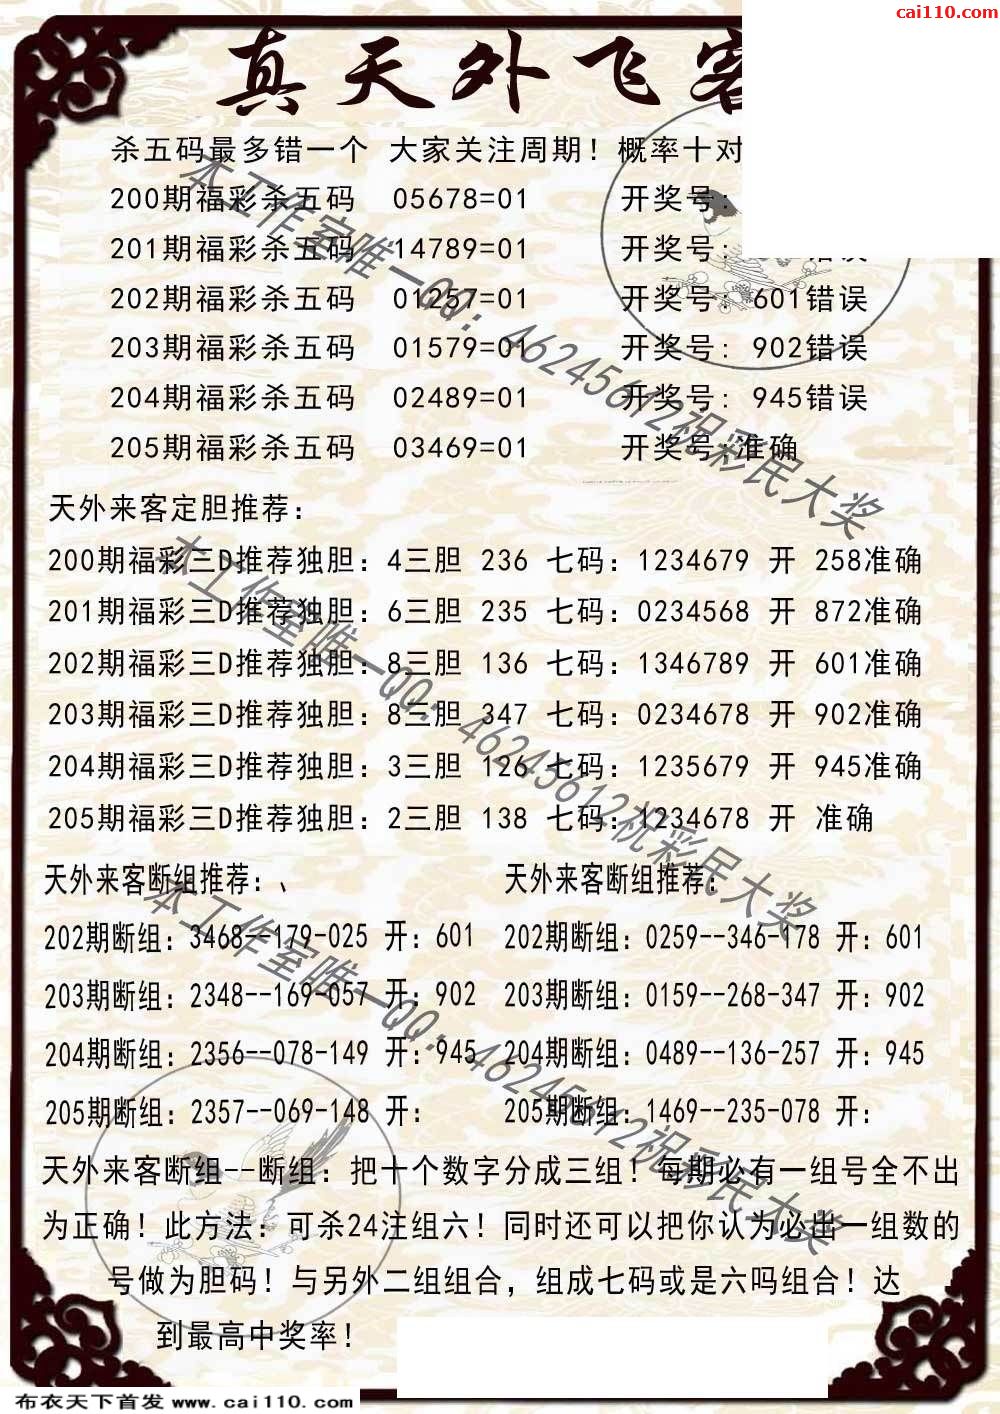 cai110.com
真天外飞客
杀五码最多错一个 大家关注周期！概率十对
200期福彩杀五码 05678=01 开奖号:
201期福彩杀五码 14789=01 开奖号: 错误
202期福彩杀五码 01257=01 开奖号: 601错误
203期福彩杀五码 01579=01 开奖号: 902错误
204期福彩杀五码 02489=01 开奖号: 945错误
205期福彩杀五码 03469=01 开奖号:准确
天外来客定胆推荐:
200期福彩三D推荐独胆: 4三胆 236 七码: 1234679 开 258准确
201期福彩三D推荐独胆: 6三胆 235 七码: 0234568 开 872准确
202期福彩三D推荐独胆: 8三胆 136 七码: 1346789 开 601准确
203期福彩三D推荐独胆: 8三胆 347 七码: 0234678 开 902准确
204期福彩三D推荐独胆: 3三胆 126 七码: 1235679 开 945准确
205期福彩三D推荐独胆: 2三胆 138 七码: 1234678 开 准确
天外来客断组推荐:、 天外来客断组推荐:
202期断组: 3468--179-025 开: 601 202期断组: 0259--346-178 开: 601
203期断组: 2348--169-057 开: 902 203期断组: 0159--268-347 开: 902
204期断组: 2356--078-149 开: 945 204期断组: 0489--136-257 开: 945
205期断组: 2357--069-148 开: 205期断组: 1469--235-078 开:
天外来客断组--断组: 把十个数字分成三组！每期必有一组号全不出
为正确！此方法: 可杀24注组六！同时还可以把你认为必出一组数的
号做为胆码！与另外二组组合，组成七码或是六吗组合！达
到最高中奖率！
本工作室唯一QQ: 46245612祝彩民大奖
本工作室唯一QQ: 46245612祝彩民大奖
本工作室唯一QQ: 46245612祝彩民大奖
布衣天下首发 www.cai110.com